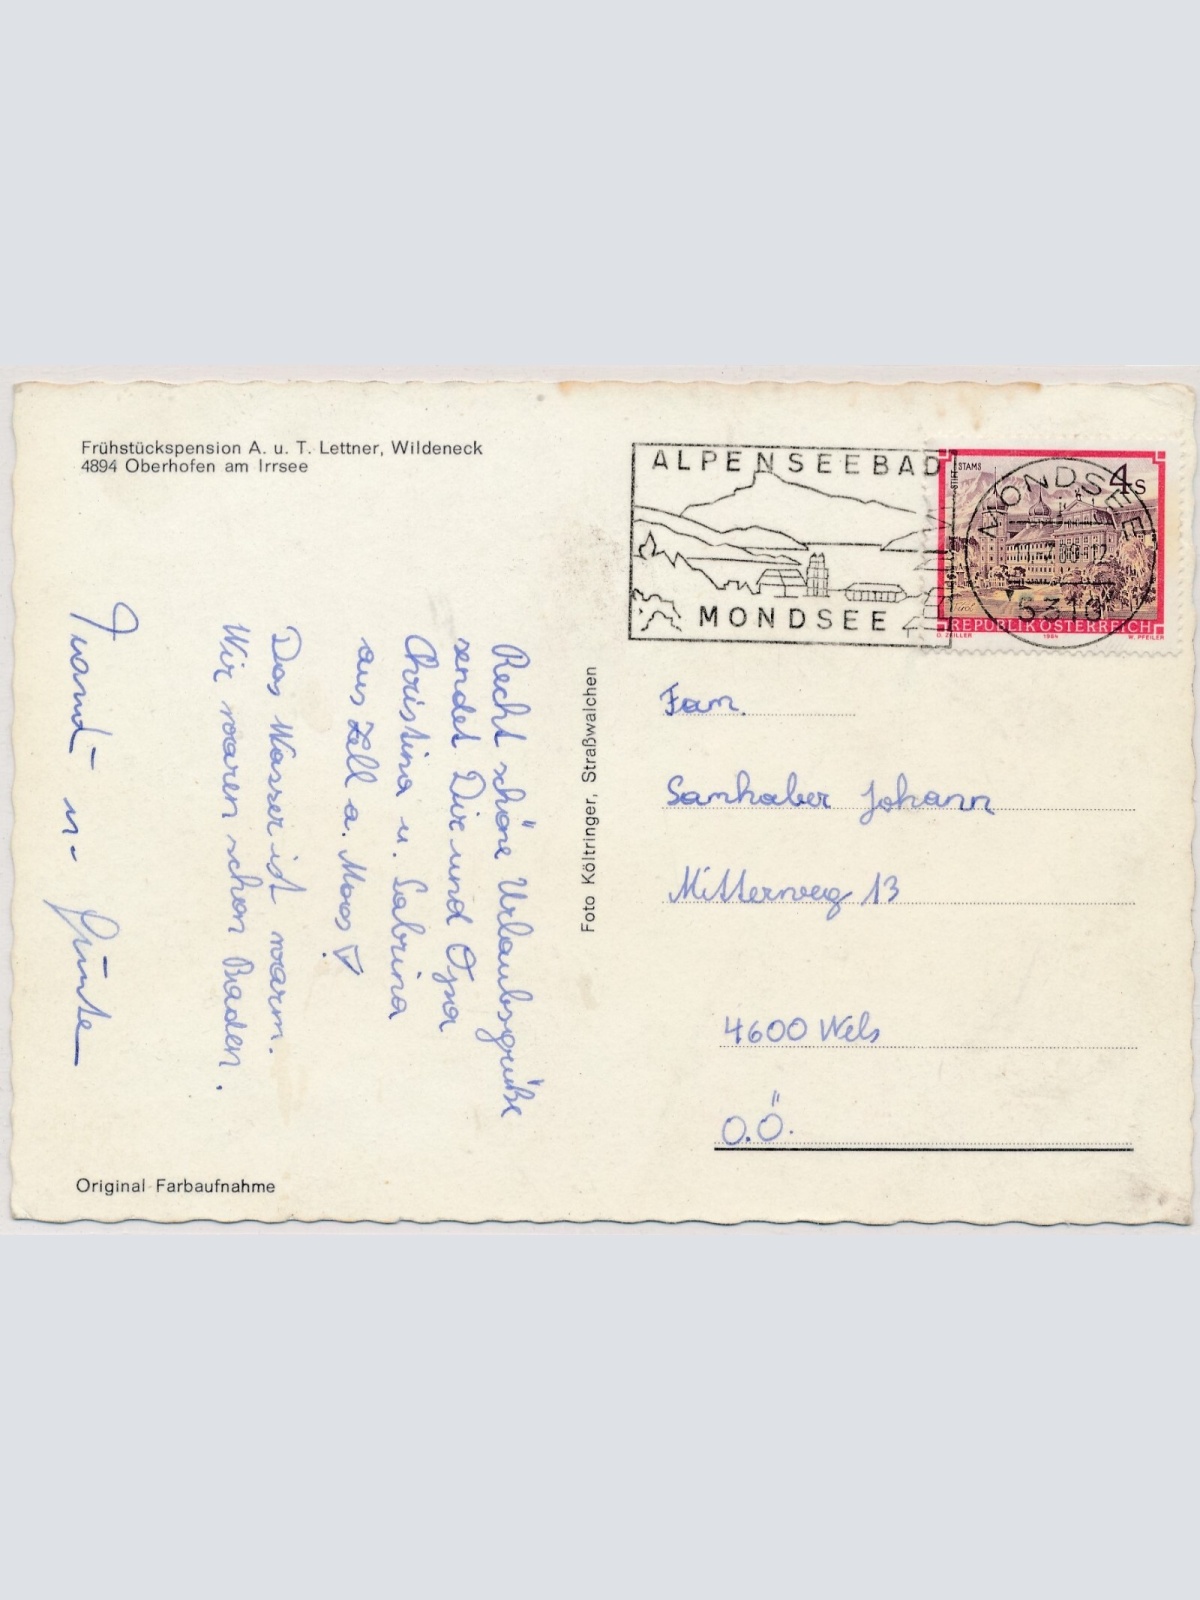 Frühstückspension A. u. T. Lettner, Wildeneck
4894 Oberhofen am Irrsee
ALPENSEEBAD
MONDSEE
MONDSEE
5310
STIFT STAMS
4 S
Tirol
REPUBLIK ÖSTERREICH
O. ZEILLER 1984 W. PFEILER
Recht schöne Urlaubsgrüße
sendet Dir und Opa
Christina u. Sabrina
aus Zell a. Moos!
Das Wasser ist warm.
Wir waren schon Baden.
u.
Foto Költringer, Straßwalchen
Fam.
Samhaber Johann
Mitterweg 13
4600 Wels
O.Ö.
Original-Farbaufnahme